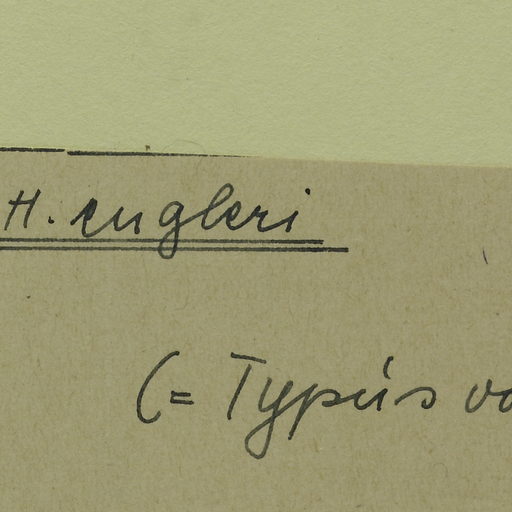 H. engleri
(= Typus